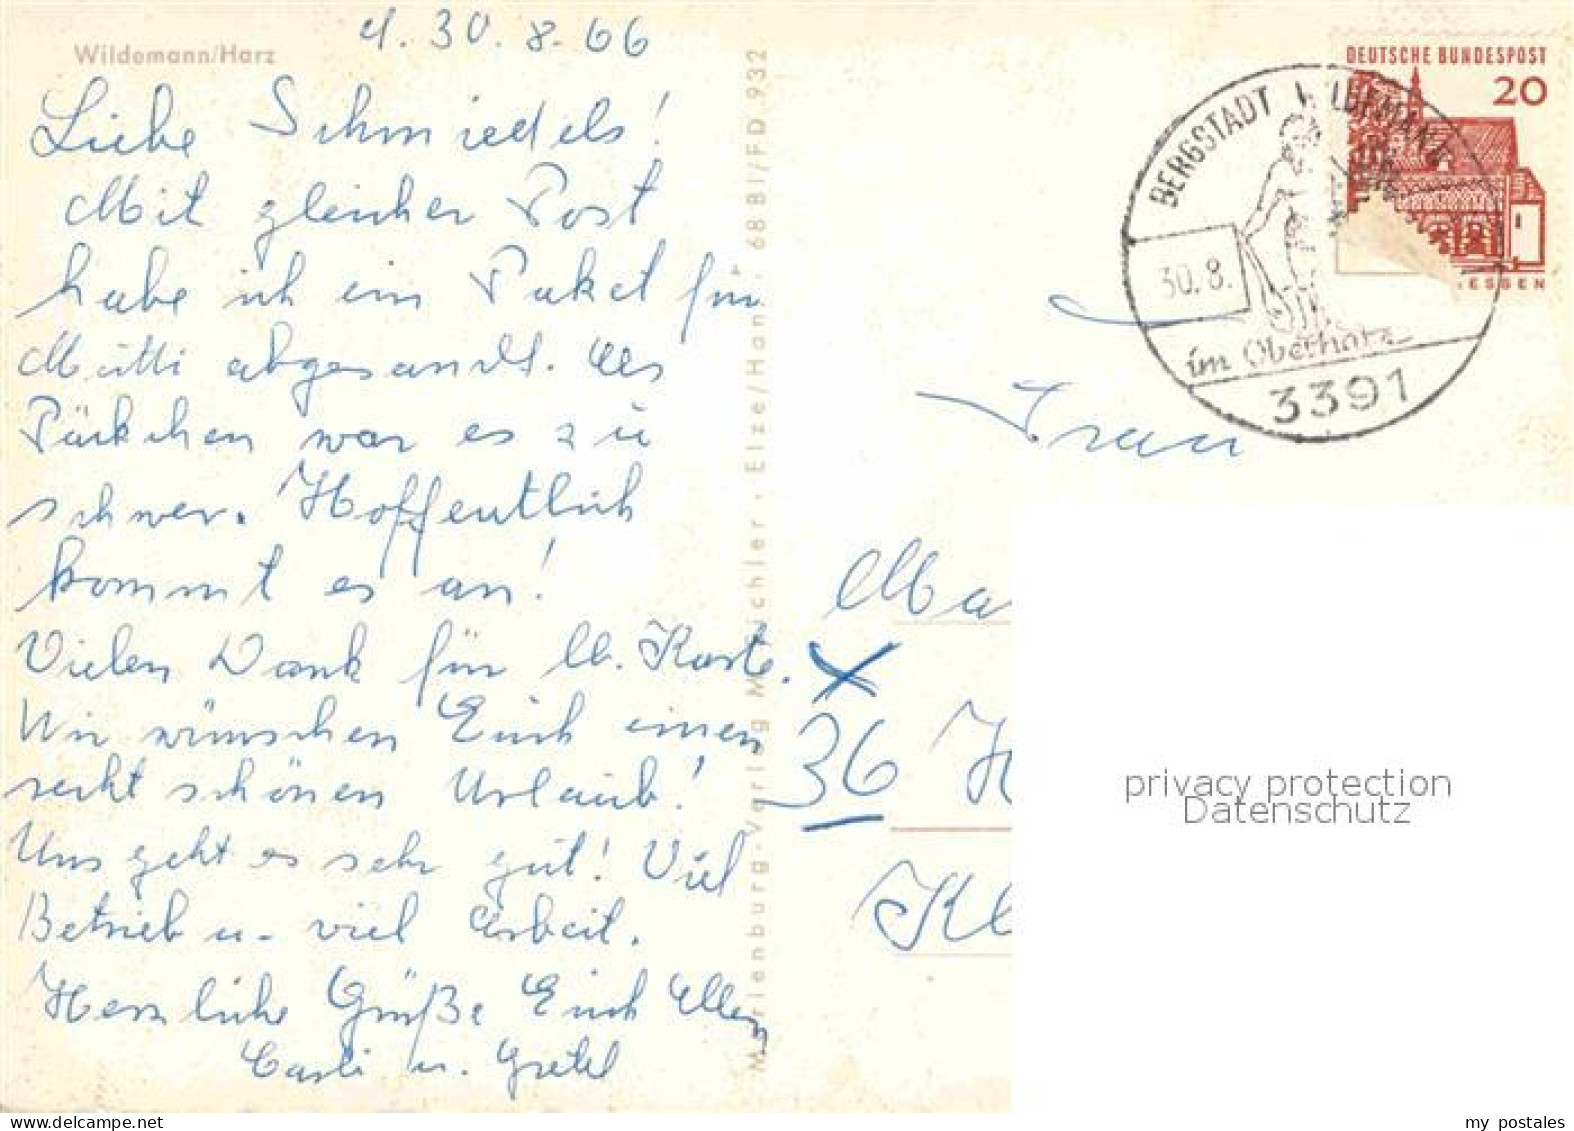 Wildemann/Harz
d. 30.8.66
Liebe Schmiedels!
Mit gleicher Post
habe ich ein Paket für
Mutti abgesandt. Als
Päckchen war es zu
schwer. Hoffentlich
kommt es an!
Vielen Dank für lb. Karte.
Wir wünschen Euch einen
recht schönen Urlaub!
Uns geht es sehr gut! Viel
Betrieb u. viel Arbeit.
Herzliche Grüße Euch Allen
Carli u. Gretel
68 BI/FD 932
DEUTSCHE BUNDESPOST
20
ESSEN
BERGSTADT WILDEMANN
30.8.
im Oberharz
3391
Frau
Ma
36
Kl
privacy protection
Datenschutz
my postales